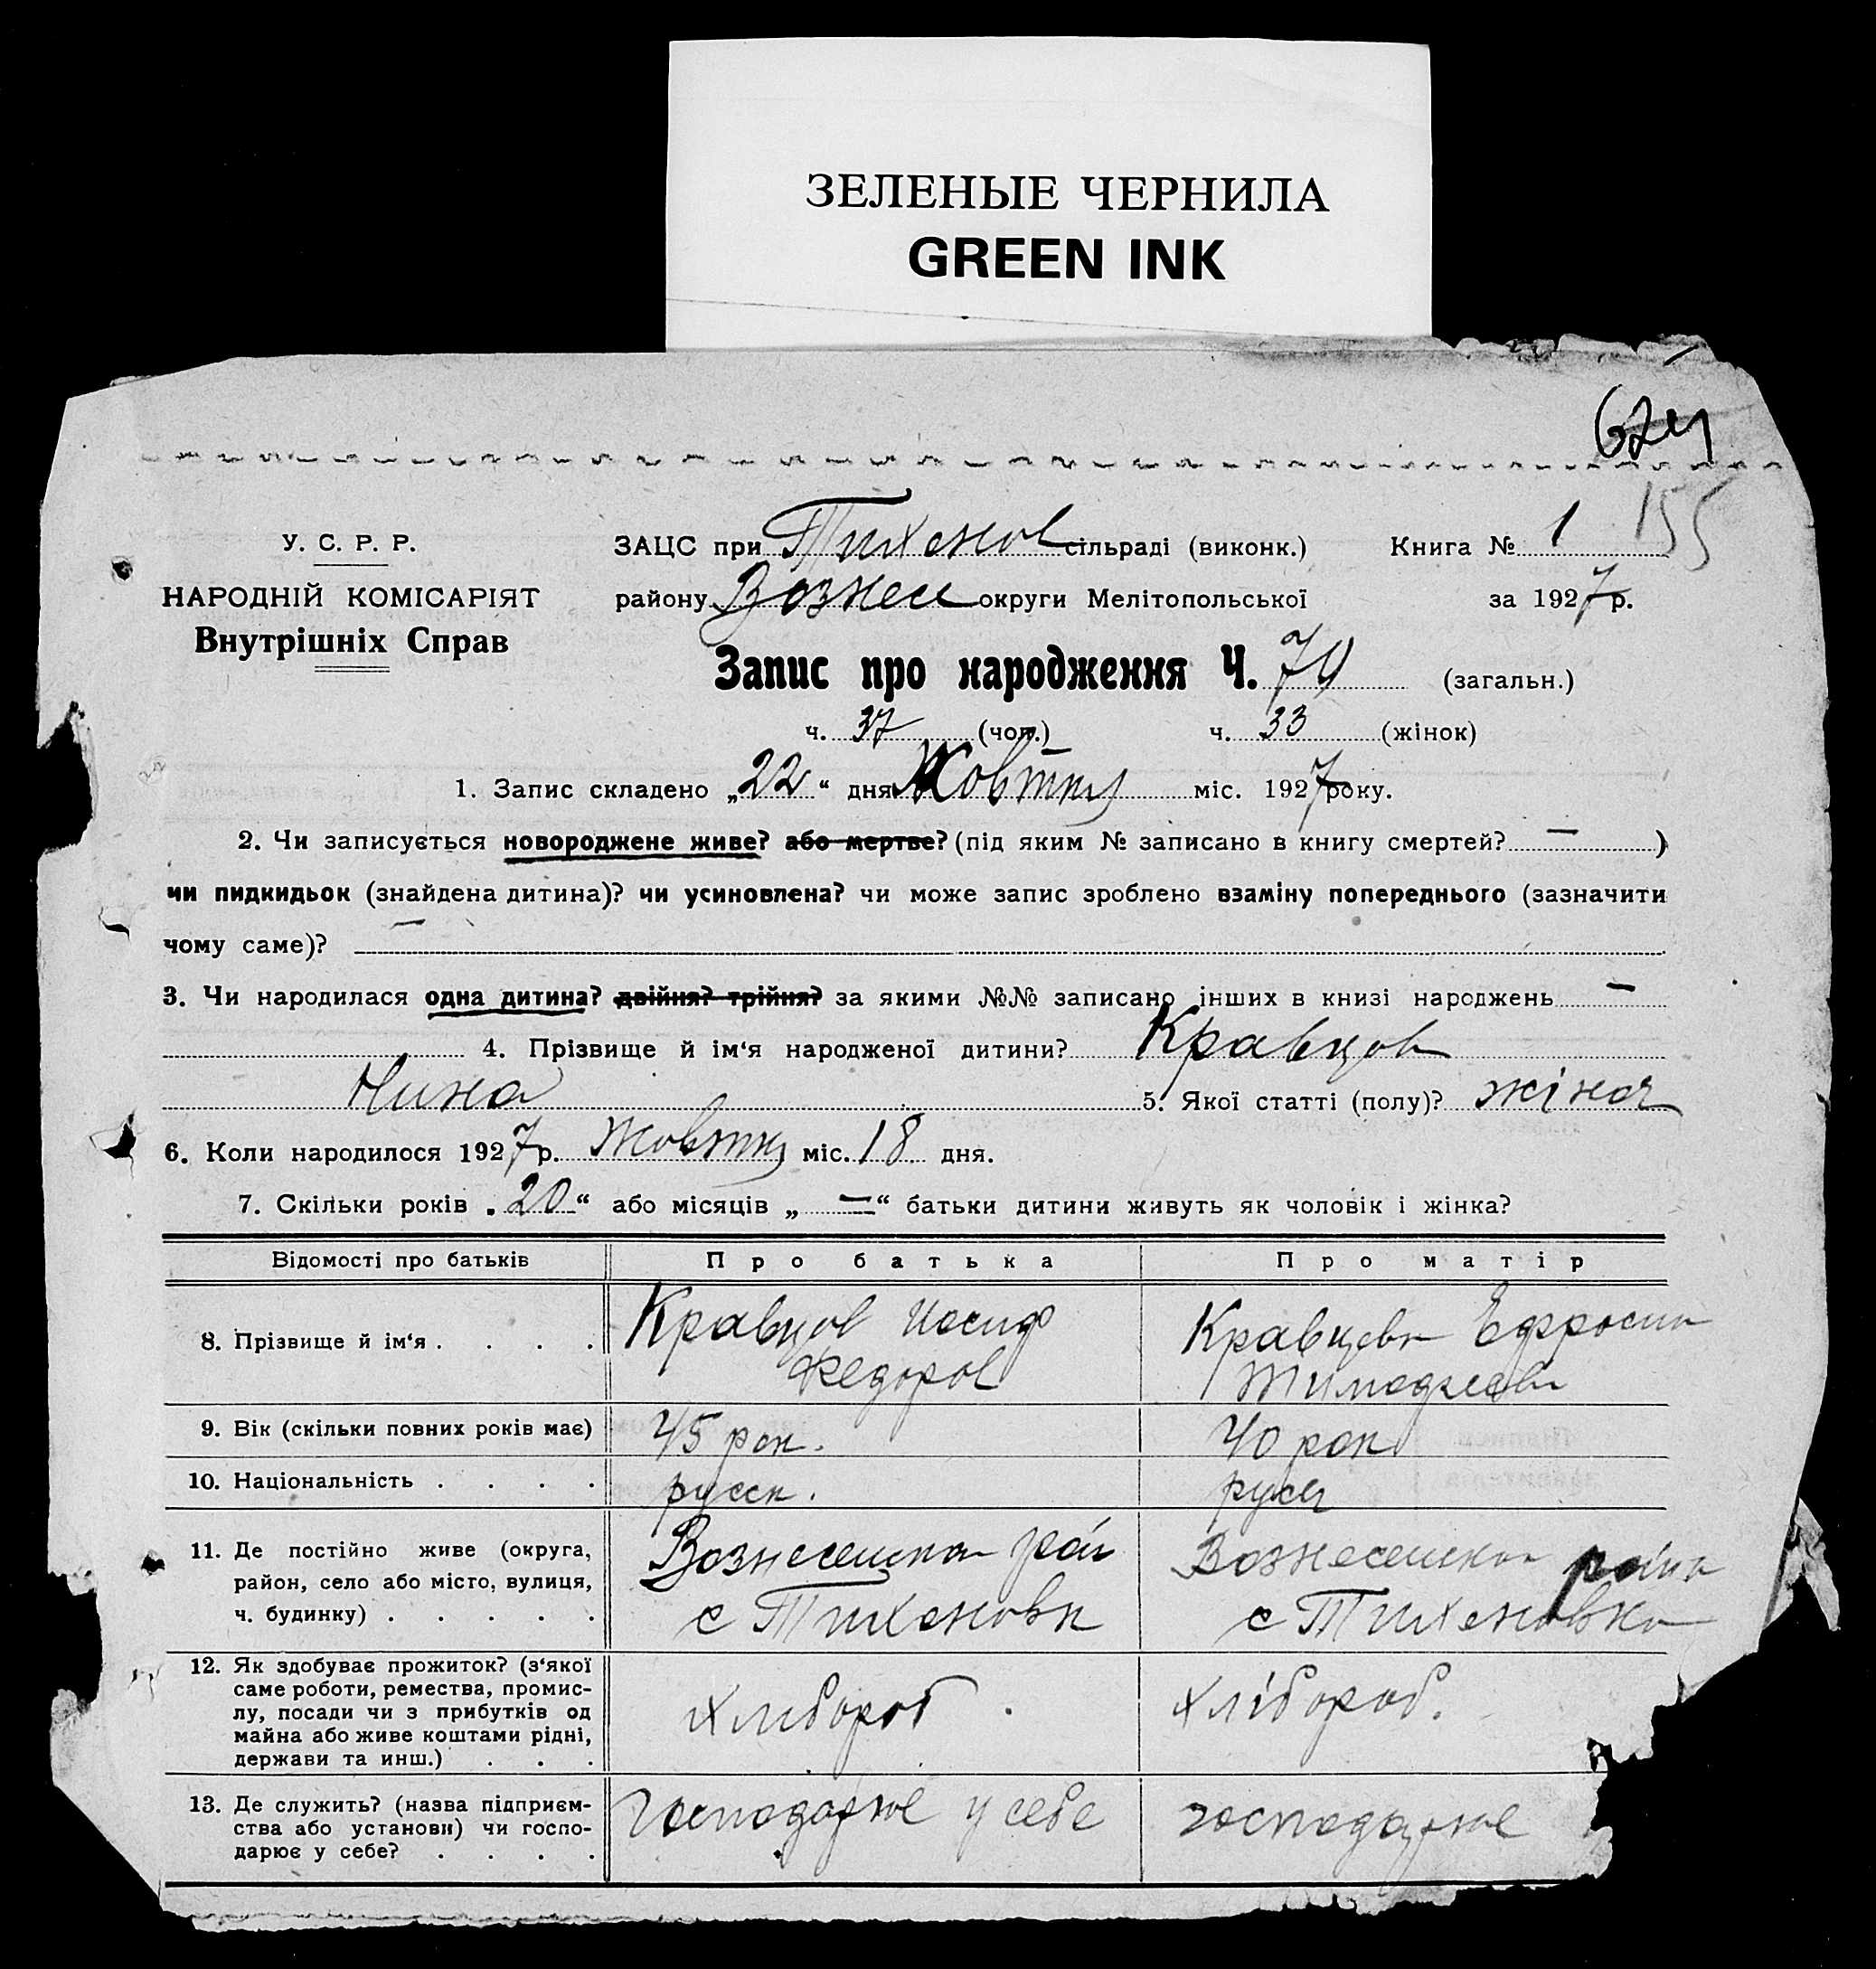 ЗЕЛЕНЫЕ ЧЕРНИЛА
GREEN INK
155
У. С. Р. Р.
НАРОДНІЙ КОМІСАРІЯТ
Внутрішніх Справ
ЗАЦС при Тихонов сільраді (виконк.) Книга № 1
району Вознес округи Мелітопольської за 1927 р.
Запис про народження Ч. 70 (загальн.)
ч. 37 (чол.) ч. 33 (жінок)
1. Запис складено „22“ дня Жовтня міс. 1927 року.
2. Чи записується новороджене живе? або мертве? (під яким № записано в книгу смертей? — )
чи пидкидьок (знайдена дитина)? чи усиновлена? чи може запис зроблено взаміну попереднього (зазначити
чому саме)? —
3. Чи народилася одна дитина? двійня? трійня? за якими №№ записано інших в книзі народжень —
4. Прізвище й ім‘я народженої дитини? Кравцов
Нина 5. Якої статті (полу)? жіноч
6. Коли народилося 1927 р. Жовтня міс. 18 дня.
7. Скільки років „20“ або місяців „—“ батьки дитини живуть як чоловік і жінка?
Відомості про батьків Про батька Про матір
8. Прізвище й ім‘я . . . . Кравцов Иосиф Кравцова Ефросин
Федоров Тимофеев
9. Вік (скільки повних років має) 45 рок. 40 рок
10. Національність . . . . русск. русск
11. Де постійно живе (округа, Вознесенска рай Вознесенска район
район, село або місто, вулиця,
ч. будинку) . . . . . с Тихоновк с Тихоновка
12. Як здобуває прожиток? (з‘якої
саме роботи, ремества, промис-
лу, посади чи з прибутків од Хлибороб . Хлібороб.
майна або живе коштами рідні,
держави та инш.) . . .
13. Де служить? (назва підприєм- господарює у себе господарює
ства або установи) чи госпо-
дарює у себе? . . . .